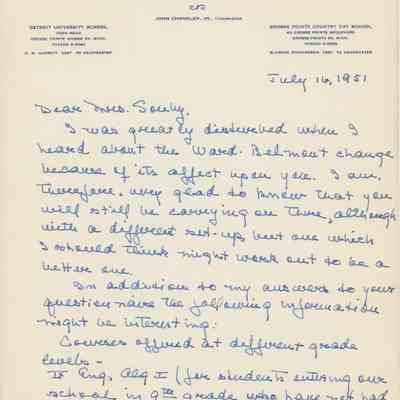 JOHN CHANDLER, JR., HEADMASTER
DETROIT UNIVERSITY SCHOOL
GROSSE POINTE COUNTRY DAY SCHOOL
July 16, 1951
Dear Mrs. Souby,
I was greatly disturbed when I
heard about the Ward-Belmont change
because of its affect upon you. I am,
therefore, very glad to know that you
will still be carrying on there, although
with a different set-up, but one which
I should think might work out to be a
better one.
In addition to my answers to your
questionnaire the following information
might be interesting:
Courses offered at different grade
levels -
IX Eng, Alg I (for students entering our
school in 9th grade who have not had